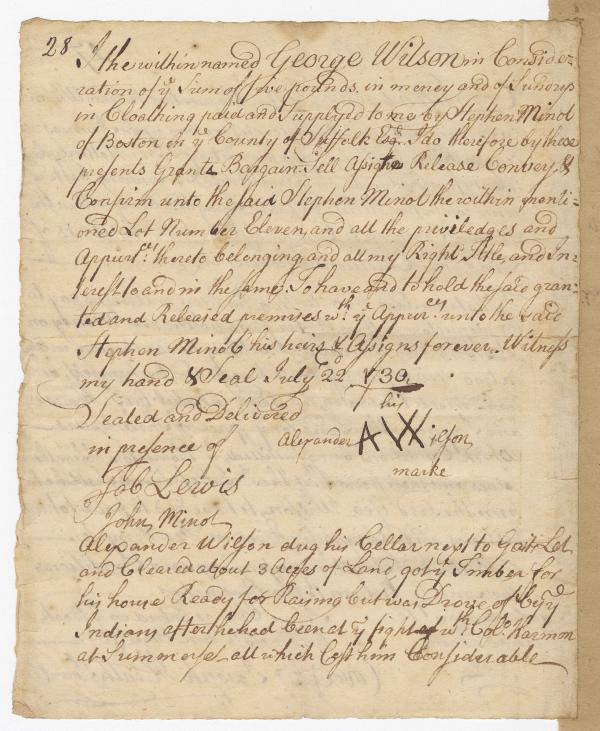 28
I the within named George Wilson in Consider=
ration of ye Sum of five pounds in money and of Sundrys
in Cloathing paid and Supplyed to me by Stephen Minot
of Boston in ye County of Suffolk Esqr. I do therefore by these
presents Grant Bargain Sell Assigne Release Convey &
Confirm unto the said Stephen Minot the within menti=
oned Lot Number Eleven, and all the priviledges and
Appurces. thereto belonging and all my Right Title, and In=
terest to and in the same. To have and to hold the said gran=
ted and Released premises wth. ye Appurces unto the said
Stephen Minot his heirs & Assigns forever. Witness
my hand & Seal July 22d 1730
his
Sealed and Delivered
in presence of Alexander A W ilson
marke
Job Lewis
John Minot
Alexander Wilson dug his Cellar next to Lot
and Cleared about 3 Acres of Land, got ye Timber for
his house Ready for Raising but was Drove of by ye
Indians after he had been at ye fight wth Colo Harmon
at Summerset all which Cost him Considerable